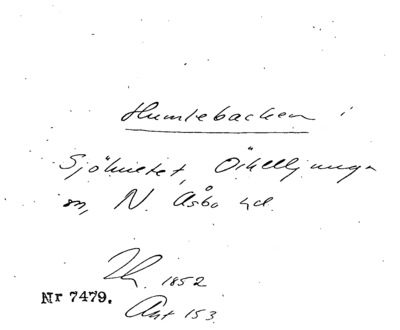 Humlebacken i
Sjöhultet, Örkelljunga
sn, N. Åsbo hd.
1852
Nr 7479.
Akt 153